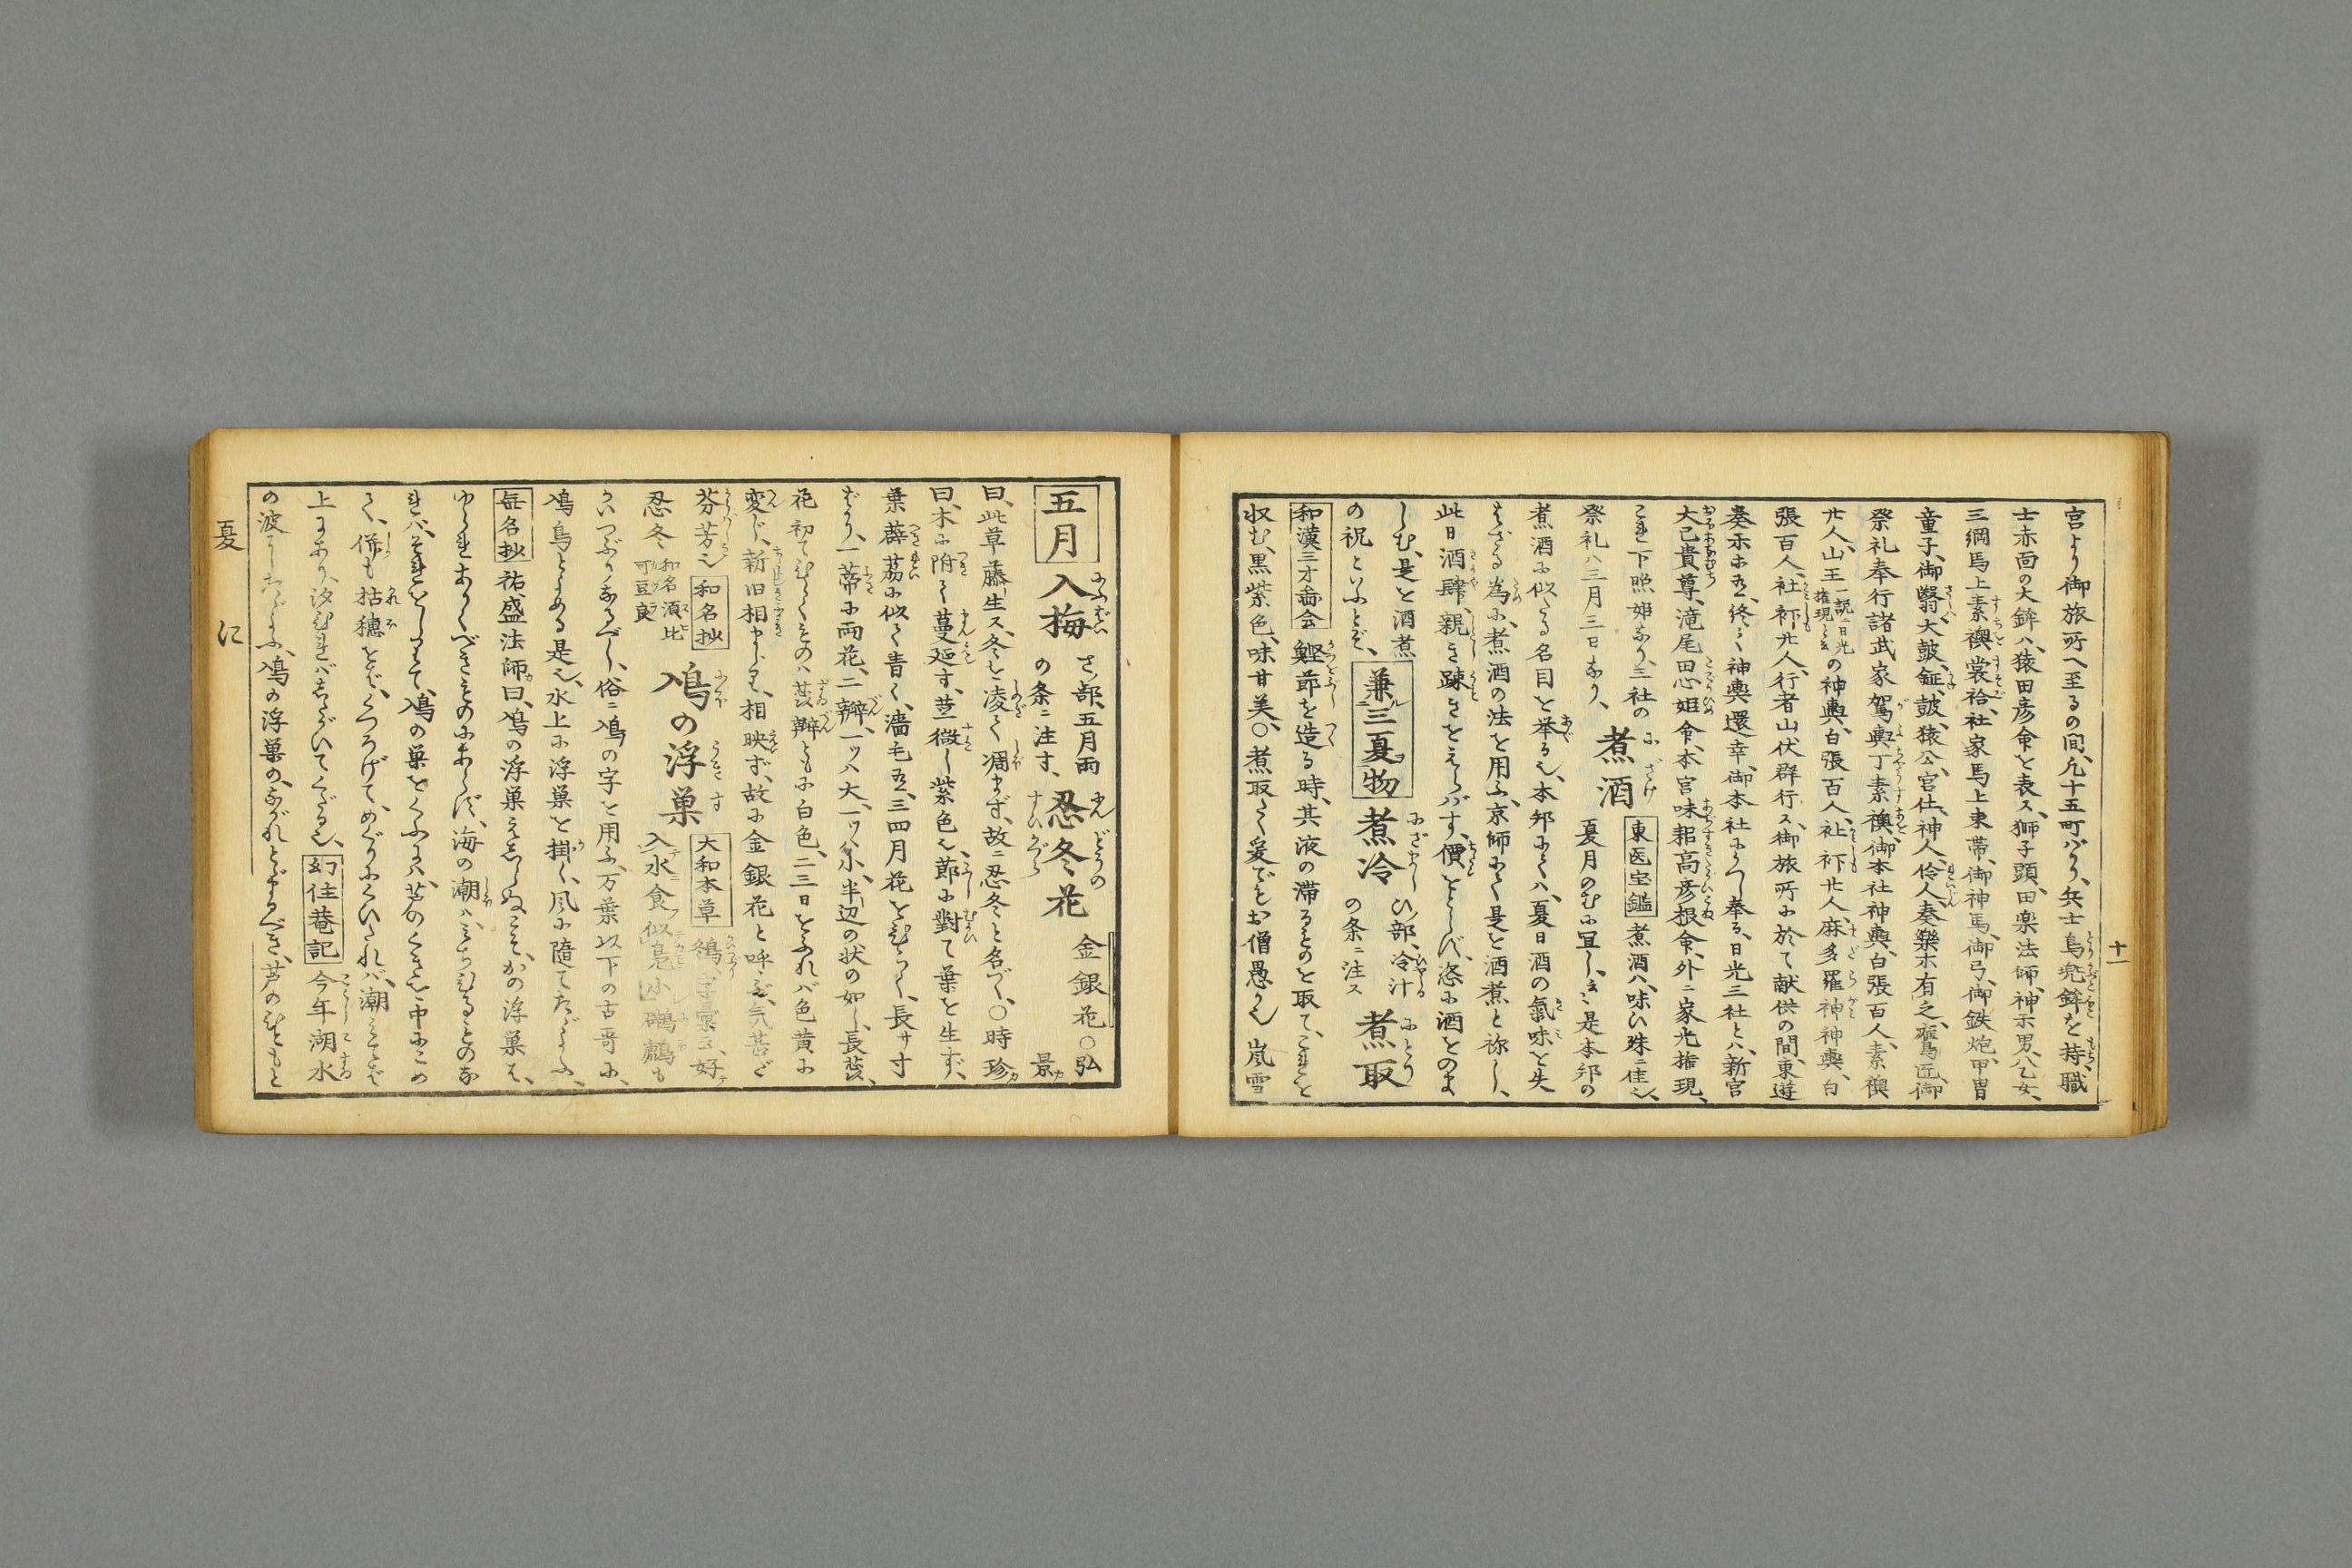 十一
宮より御旅所へ至るの間、凡十五町バかり、兵士鳥兜鉾を持、職
士赤面の大鉾ハ、猿田彦命を表ス、獅子頭、田楽法師、神示男、八乙女、
三綱馬上素襖裳袷、社家馬上束帯、御神馬、御弓、御鉄炮、甲冑
童子、御翳、大皷、鉦皷、猿公、宮仕、神人、伶人奏樂木有之、鷹匠、御
祭礼奉行諸武家駕輿丁素襖、御本社神輿、白張百人、素襖
廿人、山王一説ニ日光権現とをの神輿、白張百人、社杦廿人、麻多羅神神輿、白
張百人、社杦廿人、行者山伏群行ス、御旅所に於て献供の間、東遊
奏示木五、終て神輿還幸、御本社にうつし奉る、日光三社とハ、新宮
大己貴尊、滝尾田心姫命、本宮味耜高彦根命、外ニ家光権現、
これ下照姫なり、三社の
祭礼ハ三月三日なり、
煮酒
東医宝鑑 煮酒ハ、味ひ殊ニ佳也、
夏月のむに宜し、云々是本邦の
煮酒に似たる名目を挙る也、本邦にてハ、夏日酒の氣味を失
はざる為に、煮酒の法を用ふ、京師にて是を酒煮と称し、
此日酒肆、親き踈きをえらバず、價をとらず、恣に酒をのま
しむ、是を酒煮
の祝といふとぞ、
兼三夏物
煮冷 ひ部、冷汁
の条ニ注ス
煮取
和漢三才圖会 鰹節を造る時、其液の滞るものを取て、これを
収む、黒紫色、味甘美、〇煮取て爰でもお僧愚か也 嵐雪
五月
入梅 さ部、五月雨
の条ニ注す、
忍冬花
金銀花〇弘景
曰、此草藤生ス、冬を凌て凋まず、故ニ忍冬と名づく、〇時珍
曰、木に附て蔓延す、莖微し紫色也、節に對て葉を生ず、
葉薜茘に似て青く、濇毛五、三四月花をひらく、長サ寸
ばかり、一蒂に両花、二瓣、一ッハ大、一ッハ小、半辺の状の如し、長蕊、
花初てひらくものハ、蕊瓣ともに白色、二三日をふれバ色黄に
変じ、新旧相まじり、相映ず、故に金銀花と呼ぶ、気甚だ
芬芳也 和名抄
忍冬 和名須比可豆良
鳰の浮巣
大和本草
入水食 似鳬小
かいつぶりなるべし、俗ニ鳰の字を用ふ、万葉以下の古哥に、
鳰鳥とよめる是也、水上に浮巣を掛く、風に隨てたゞよふ、
無名抄 祐盛法師曰、鳰の浮巣えしらぬこそ、かの浮巣ハ、
ゆられありくべきものにあらず、海の潮ハ、みちひるものな
れバ、それをしりて、鳰の巣をくふにハ、芦のくきを中にこめ
て、併も枯穗をバ、くつろげて、めぐりにくひたれバ、潮みてバ
上にあり、汐ひれバしたがいてくだる也、幻住菴記 今年湖水
の波にたゞよふ、鳰の浮巣の、ながれとゞまるべき、芦のひともと
夏 に